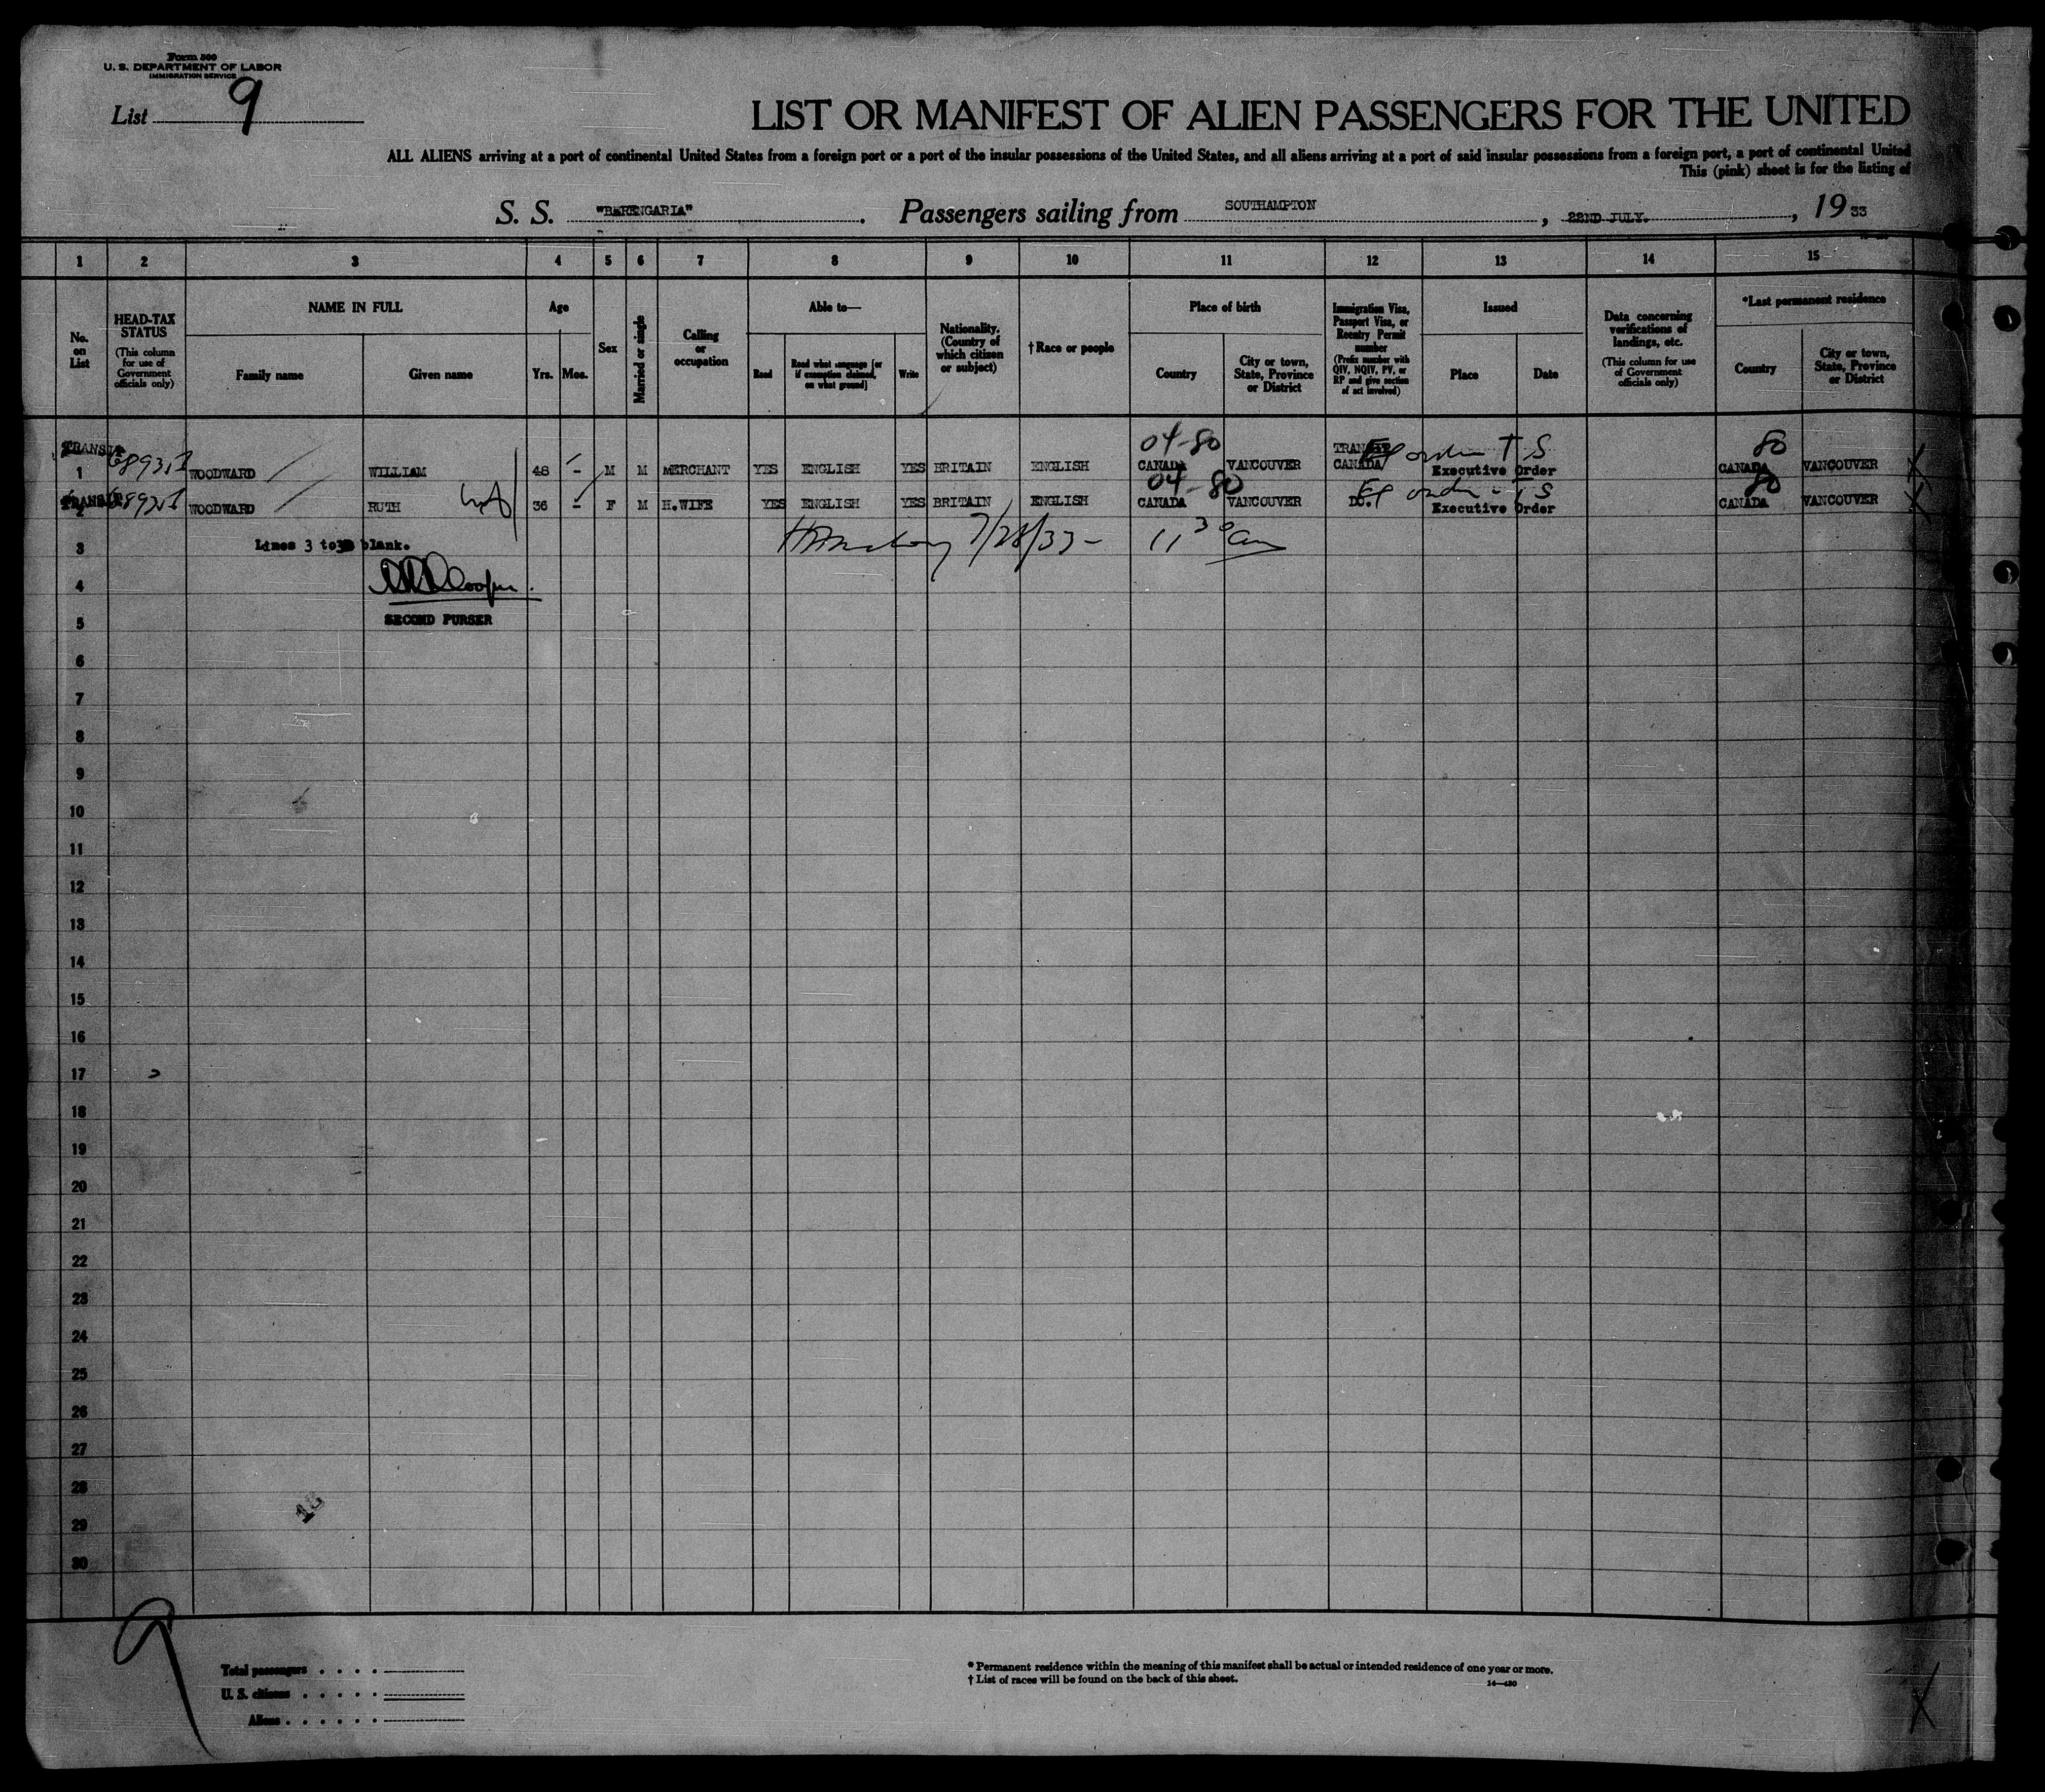 Form 500
U. S. DEPARTMENT OF LABOR
IMMIGRATION SERVICE
List 9
LIST OR MANIFEST OF ALIEN PASSENGERS FOR THE UNITED
ALL ALIENS arriving at a port of continental United States from a foreign port or a port of the insular possessions of the United States, and all aliens arriving at a port of said insular possessions from a foreign port, a port of continental United
This (pink) sheet is for the listing of
S. S. "BERENGARIA". Passengers sailing from SOUTHAMPTON, 22ND JULY., 1933
1 2 3 4 5 6 7 8 9 10 11 12 13 14 15
No. on List
HEAD-TAX STATUS
(This column for use of Government officials only)
NAME IN FULL
Family name
Given name
Age
Yrs. Mos.
Sex
Married or single
Calling or occupation
Able to—
Read
Read what language [or if exemption claimed, on what ground]
Write
Nationality. (Country of which citizen or subject)
†Race or people
Place of birth
Country
City or town, State, Province or District
Immigration Visa, Passport Visa, or Reentry Permit number
(Prefix number with QIV, NQIV, PV, or RP and give section of act involved)
Issued
Place
Date
Data concerning verifications of landings, etc.
(This column for use of Government officials only)
*Last permanent residence
Country
City or town, State, Province or District
TRANSIT 04-80 TRANSIT T S 80
1 WOODWARD WILLIAM 48 - M M MERCHANT YES ENGLISH YES BRITAIN ENGLISH CANADA VANCOUVER CANADA Executive Order CANADA VANCOUVER X
TRANSIT 04-80 80
2 WOODWARD RUTH 36 - F M H.WIFE YES ENGLISH YES BRITAIN ENGLISH CANADA VANCOUVER DO. Executive Order CANADA VANCOUVER X
3 Lines 3 to 30 blank. 7/28/33 - 11 30 am
4 Cooper.
5 SECOND PURSER
6
7
8
9
10
11
12
13
14
15
16
17
18
19
20
21
22
23
24
25
26
27
28
29
30
9
Total passengers
U. S. citizens
Aliens
* Permanent residence within the meaning of this manifest shall be actual or intended residence of one year or more.
† List of races will be found on the back of this sheet.
14—430
X